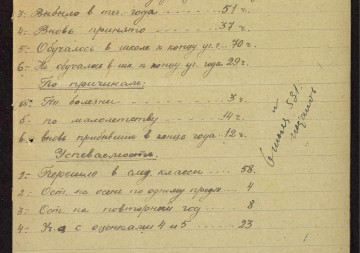 3. Выбыло в теч. года 51 ч.
4. Вновь принято 37 ч.
5. Обучалось в школе к концу уч. г. 70 ч.
6. Не обучалось в шк. к концу уч. года 29 ч.
По причинам:
а. По болезни 3 ч.
б. по малолетству 14 ч.
в. вновь прибывших в конце года 12 ч.
Успеваемость.
1. Перешло в след. классы 58.
2. Ост. на осень по одному предм. 4
3. Ост. на повторный год 8
4. с оценками 4 и 5 23